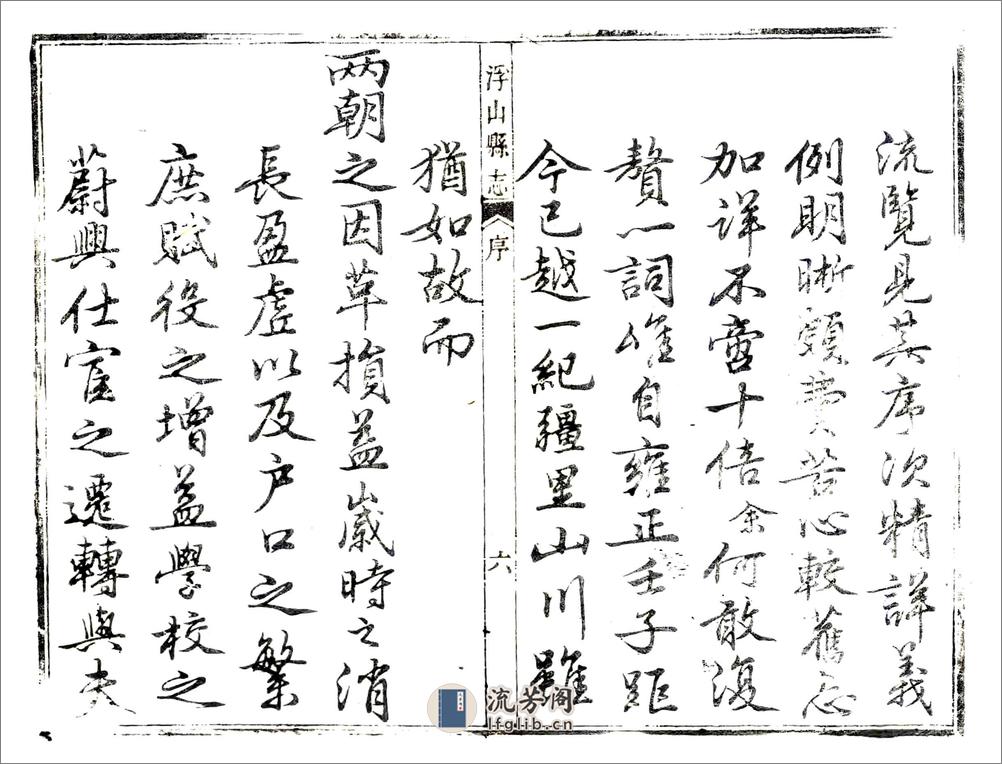 流覽見其序次精詳義
例明晰頗費苦心較舊志
加詳不啻十倍余何敢復
贅一詞唯自雍正壬子距
今已越一紀疆里山川雖
浮山縣志
序
六
猶如故而
兩朝之因革損益歲時之消
長盈虛以及户口之繁
庶賦役之增益學校之
蔚興仕宦之遷轉與夫
流芳阁
lfglib.cn